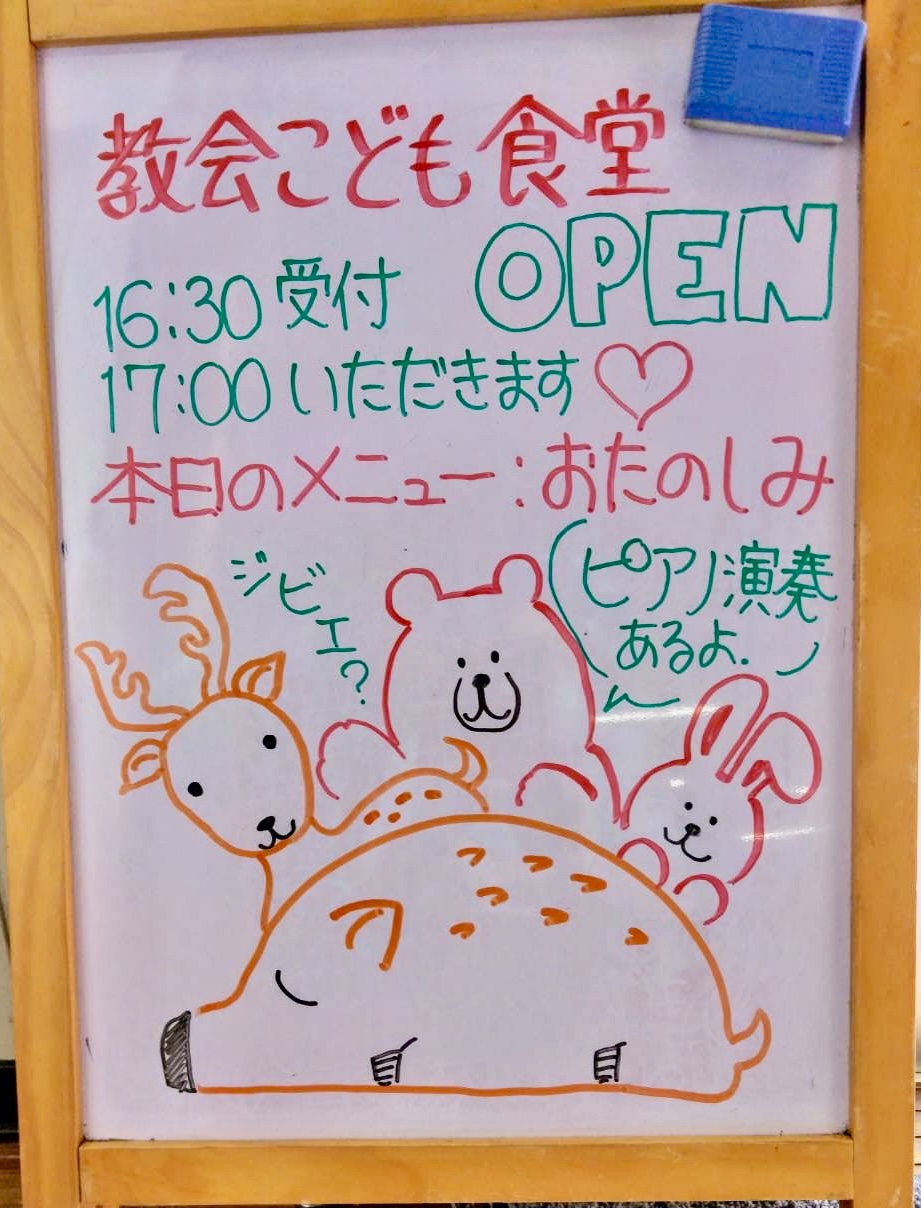 教会こども食堂
OPEN
16:30 受付
17:00 いただきます♡
本日のメニュー:おたのしみ
ジビエ?
ピアノ演奏
あるよ.